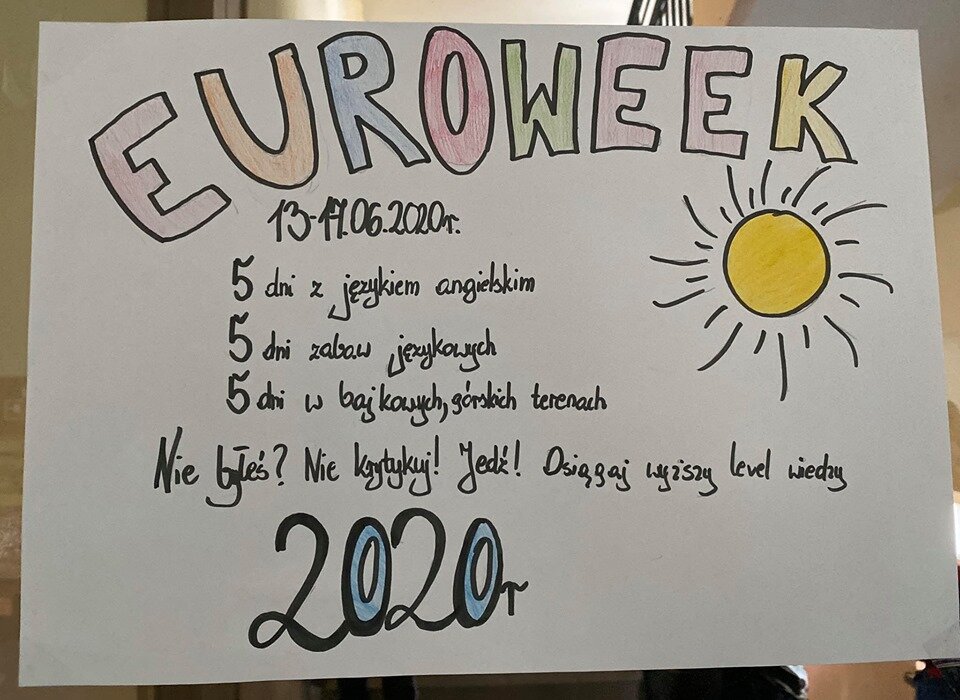 EUROWEEK
13-17.06.2020r.
5 dni z językiem angielskim
5 dni zabaw językowych
5 dni w bajkowych, górskich terenach
Nie byłeś? Nie krytykuj! Jedź! Osiągaj wyższy level wiedzy
2020r